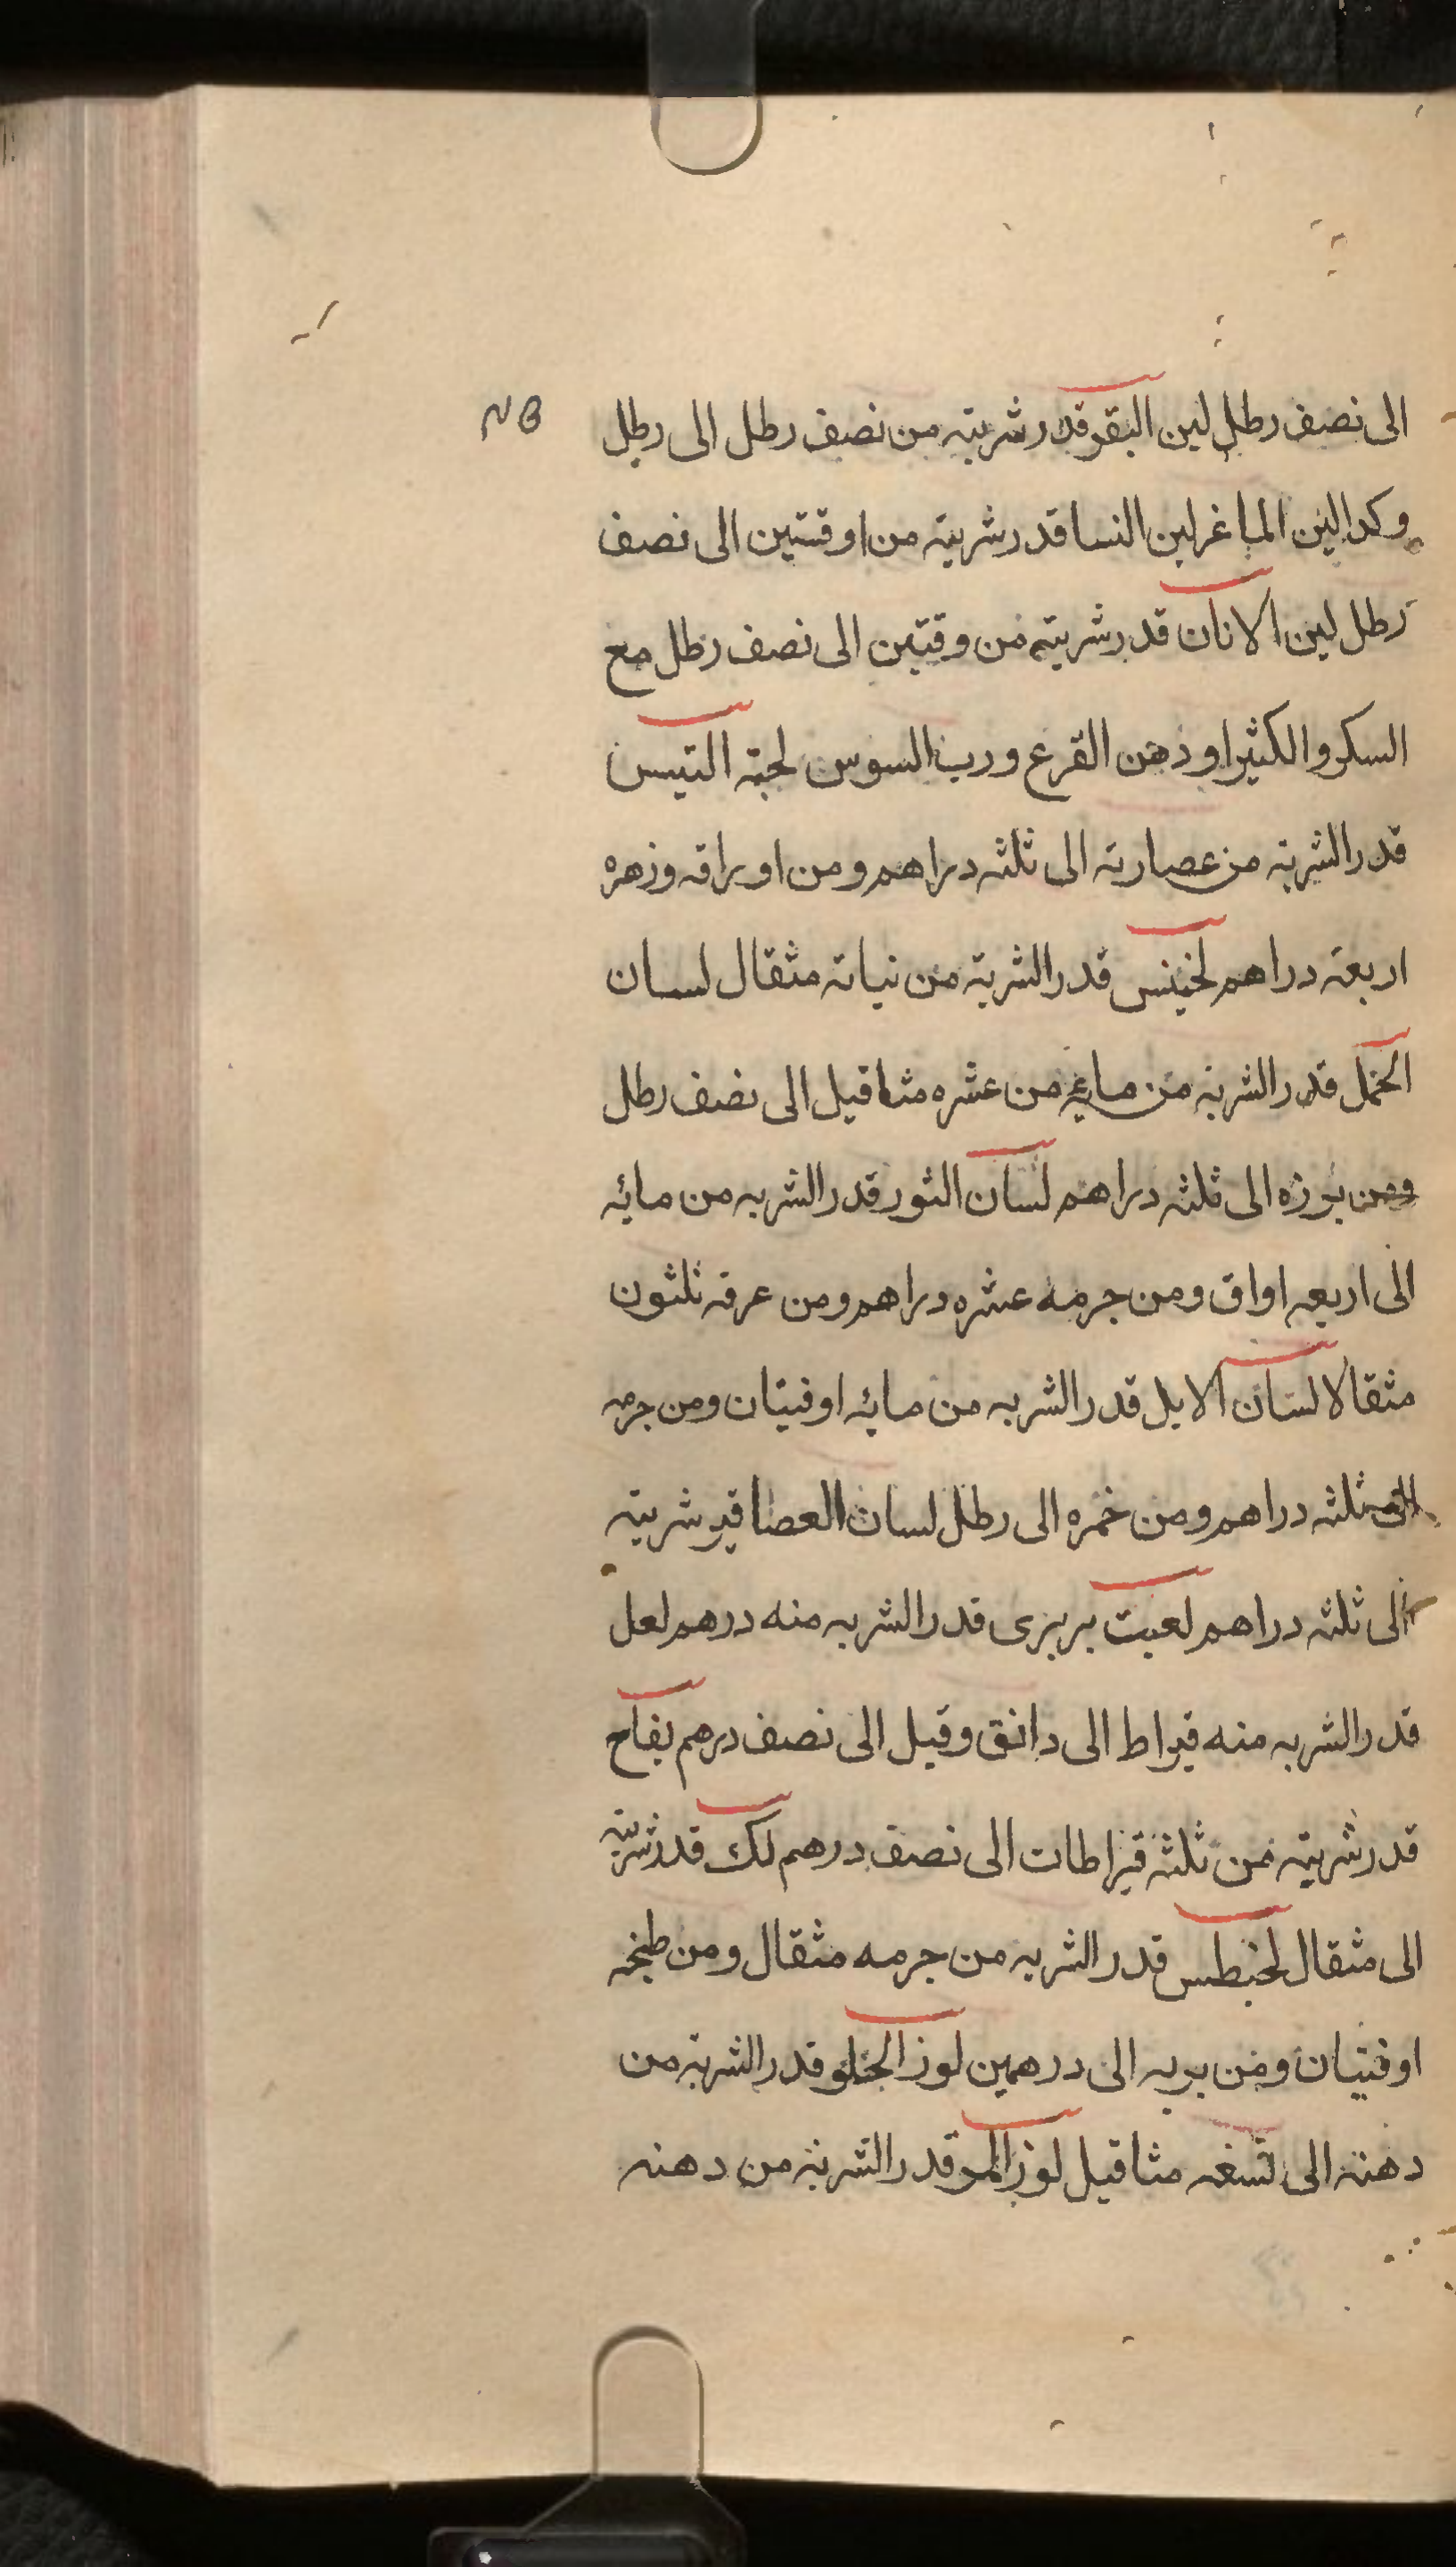 الى نصف رطل لبن البقر قدر شربته من نصف رطل الى رطل
وكدا لبن الماغر لبن النسا قدر شربته من اوقتين الى نصف
رطل لبن الاتان قدر شربته من وقتين الى نصف رطل مع
السكر والكثيرا و دهن القرع ورب السوس لحية التيس
قدر الشربة من عصارته الى ثلثه دراهم ومن اوراقه وزهره
اربعة دراهم لخينس قدر الشربة من نباته مثقال لسان
الحمل قدر الشربة من مايه من عشره مثاقيل الى نصف رطل
ومن بزره الى ثلثه دراهم لسان الثور قدر الشربه من مائه
الى اربعه اواق ومن جرمه عشره دراهم ومن عرقه ثلثون
مثقالا لسان الايل قدر الشربه من مائه اوقيتان ومن جرمه
الى ثلثه دراهم ومن خمره الى رطل لسان العصافير شربته
الى ثلثه دراهم لعبت بربرى قدر الشربه منه درهم لعل
قدر الشربه منه قيراط الى دانق وقيل الى نصف درهم لفاح
قدر شربته من ثلثه قيراطات الى نصف درهم لك قدر شربته
الى مثقال لخنطس قدر الشربه من جرمه مثقال ومن طبخه
اوقيتان ومن بربه الى درهمين لوز الحلو قدر الشربة من
دهنه الى تسعه مثاقيل لوز المر قدر الشربة من دهنه